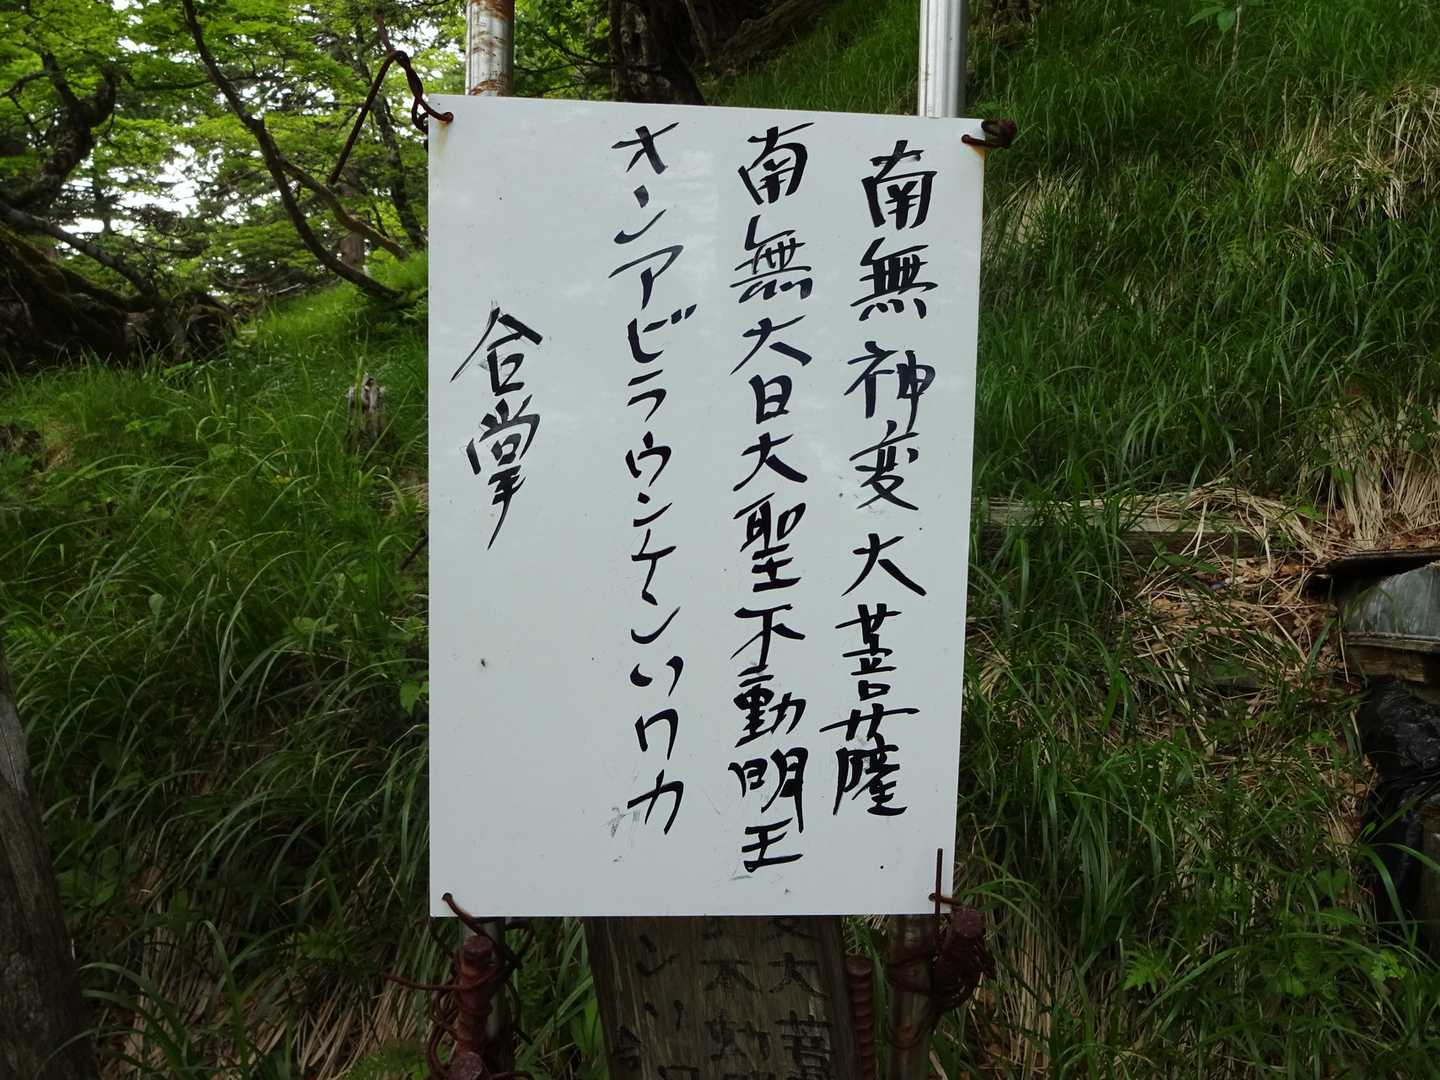 南無神変大菩薩
南無大日大聖不動明王
オンアビラウンケンソワカ
合掌